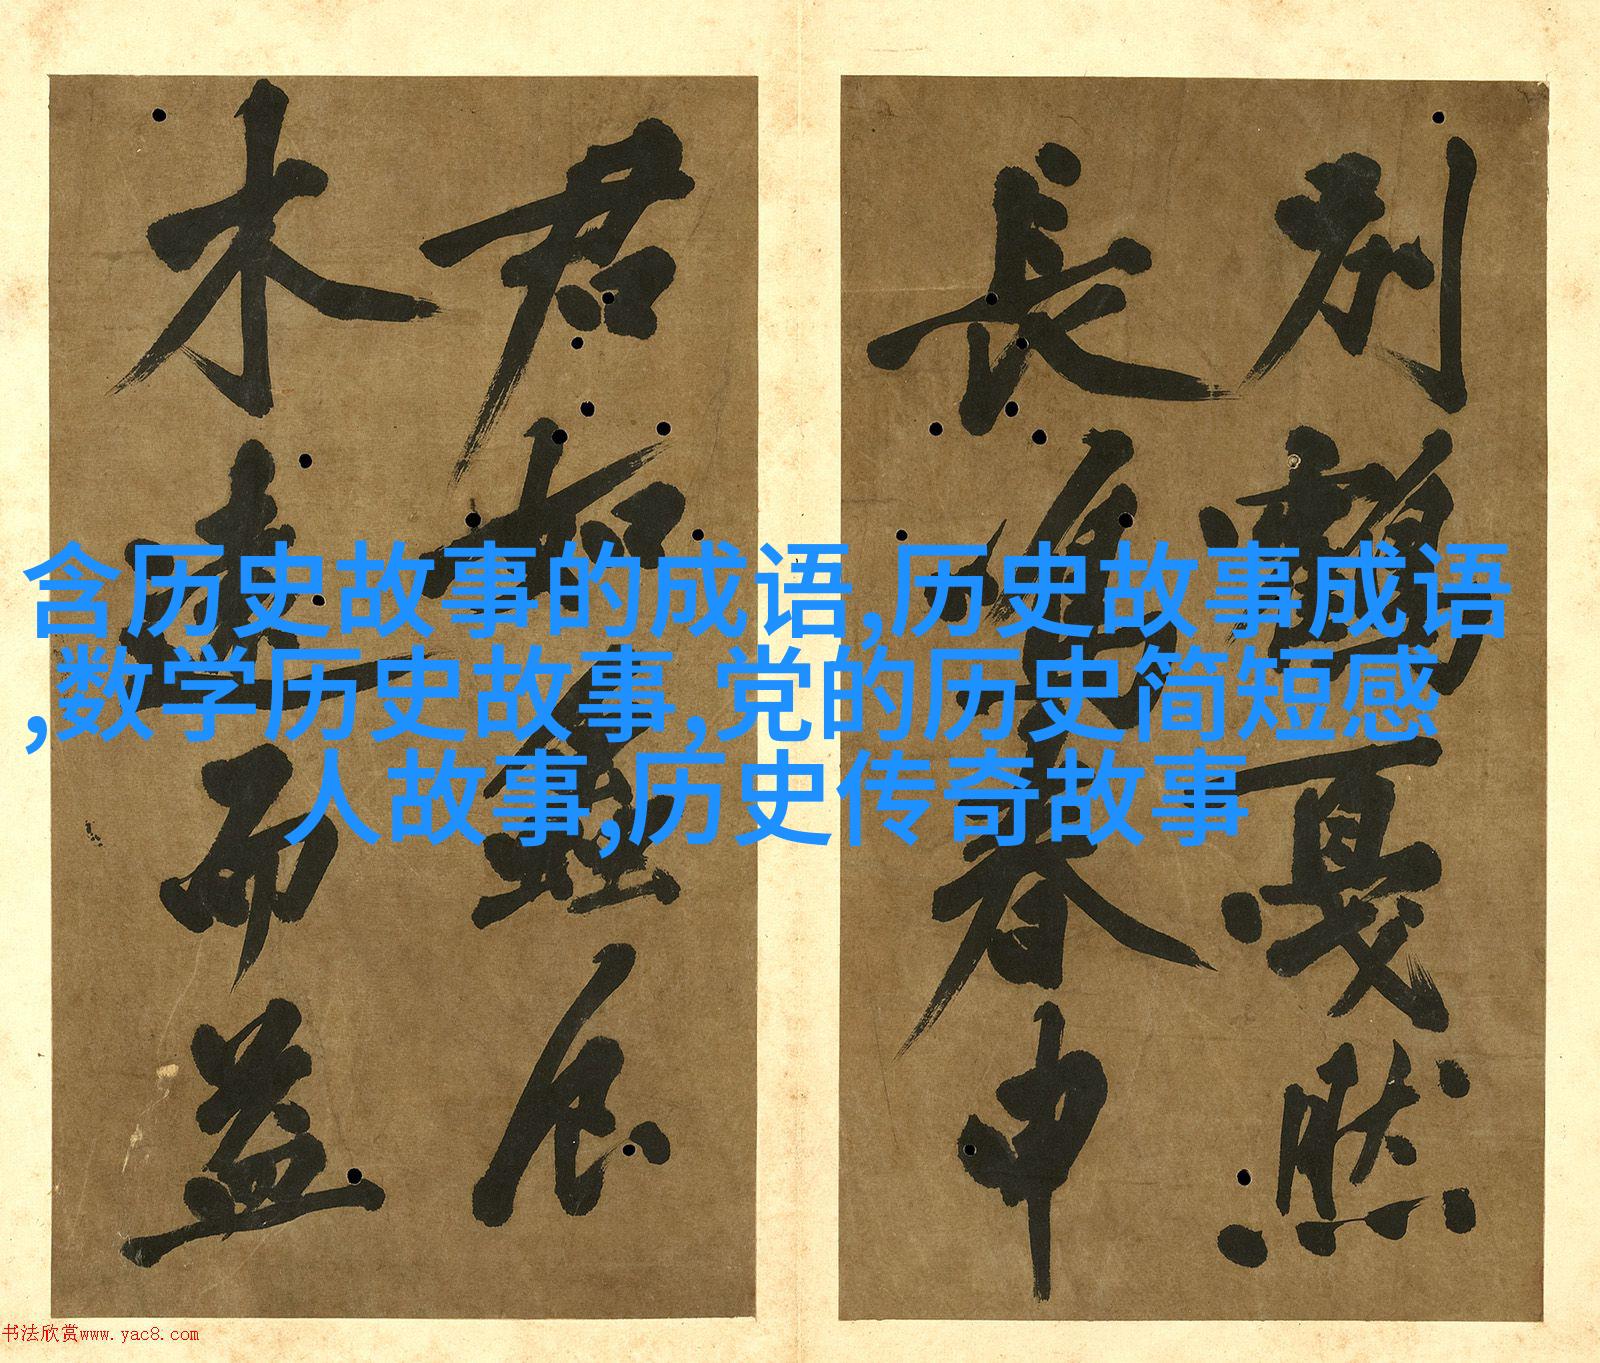 含历史故事的成语,历史故事成语
,数学历史故事,党的历史简短感
人故事,历史传奇故事
別鶴戛然
長春申
君如
木遠而益
书法欣赏www.yac8.com